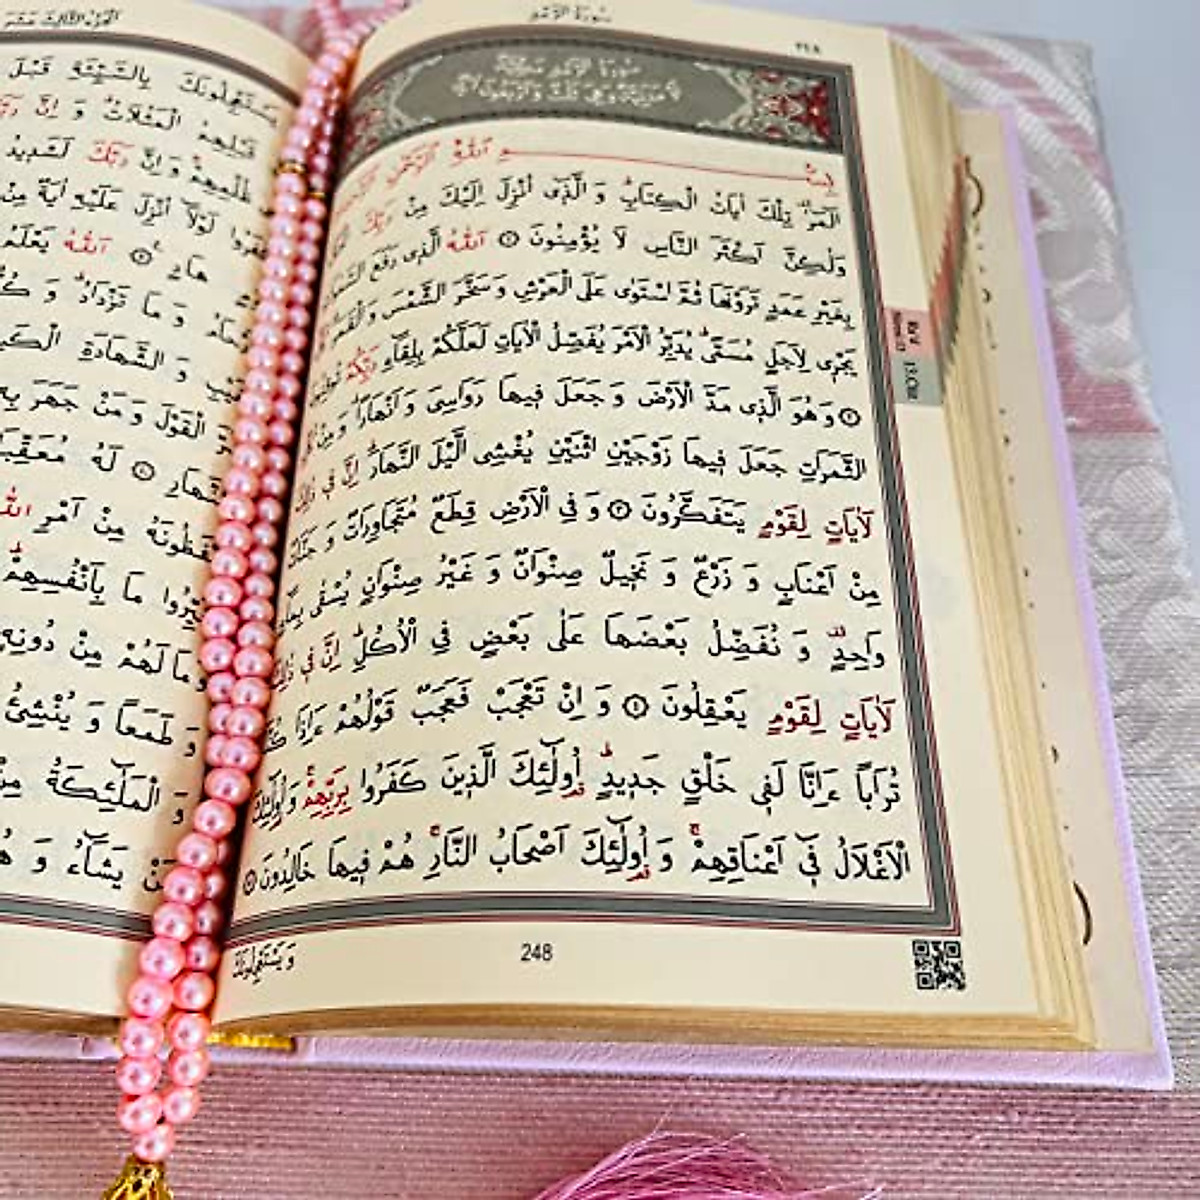 سورة الرعد
٢٤٨
سورة الرعد
بسم الله الرحمن
الٓمٓرٰ تِلْكَ اٰيَاتُ الْكِتَابِ وَ الَّذٖى اُنْزِلَ اِلَيْكَ مِنْ رَبِّكَ
وَلٰكِنَّ اَكْثَرَ النَّاسِ لَا يُؤْمِنُونَ ١ اَللّٰهُ الَّذٖى رَفَعَ
بِغَيْرِ عَمَدٍ تَرَوْنَهَا ثُمَّ اسْتَوٰى عَلَى الْعَرْشِ وَ سَخَّرَ الشَّمْسَ وَ الْقَمَرَ
يَجْرٖى لِاَجَلٍ مُسَمًّى يُدَبِّرُ الْاَمْرَ يُفَصِّلُ الْاٰيَاتِ لَعَلَّكُمْ بِلِقَاءِ رَبِّكُمْ
٢ وَ هُوَ الَّذٖى مَدَّ الْاَرْضَ وَ جَعَلَ فٖيهَا رَوَاسِىَ وَ اَنْهَارًا وَ مِنْ
الثَّمَرَاتِ جَعَلَ فٖيهَا زَوْجَيْنِ اثْنَيْنِ يُغْشِى الَّيْلَ النَّهَارَ اِنَّ فٖى
لَاٰيَاتٍ لِقَوْمٍ يَتَفَكَّرُونَ ٣ وَ فِى الْاَرْضِ قِطَعٌ مُتَجَاوِرَاتٌ وَ
مِنْ اَعْنَابٍ وَ زَرْعٌ وَ نَخٖيلٌ صِنْوَانٌ وَ غَيْرُ صِنْوَانٍ يُسْقٰى
وَاحِدٍ وَ نُفَضِّلُ بَعْضَهَا عَلٰى بَعْضٍ فِى الْاُكُلِ اِنَّ فٖى
لَاٰيَاتٍ لِقَوْمٍ يَعْقِلُونَ ٤ وَ اِنْ تَعْجَبْ فَعَجَبٌ قَوْلُهُمْ ءَاِذَا
تُرَابًا ءَاِنَّا لَفٖى خَلْقٍ جَدٖيدٍ اُولٰٓئِكَ الَّذٖينَ كَفَرُوا بِرَبِّهِمْ وَ اُولٰٓئِكَ
الْاَغْلَالُ فٖٓى اَعْنَاقِهِمْ وَ اُولٰٓئِكَ اَصْحَابُ النَّارِ هُمْ فٖيهَا خَالِدُونَ ٥
وَ يَسْتَعْجِلُونَكَ
248
يَسْتَعْجِلُونَكَ بِالسَّيِّئَةِ قَبْلَ
قَبْلِهِمُ الْمَثُلَاتُ وَ اِنَّ
ظُلْمِهِمْ وَ اِنَّ رَبَّكَ لَشَدٖيدُ
لَوْلَا اُنْزِلَ عَلَيْهِ اٰيَةٌ مِنْ
هَادٍ ٧ اَللّٰهُ يَعْلَمُ
وَ مَا تَزْدَادُ وَ
وَ الشَّهَادَةِ
الْقَوْلَ وَ مَنْ جَهَرَ
لَهُ
مِنْ اَمْرِ
مَا بِاَنْفُسِهِمْ
لَهُمْ مِنْ دُونِهٖ
وَ طَمَعًا وَ يُنْشِئُ
وَ الْمَلٰٓئِكَةُ مِنْ
يَشَٓاءُ وَ